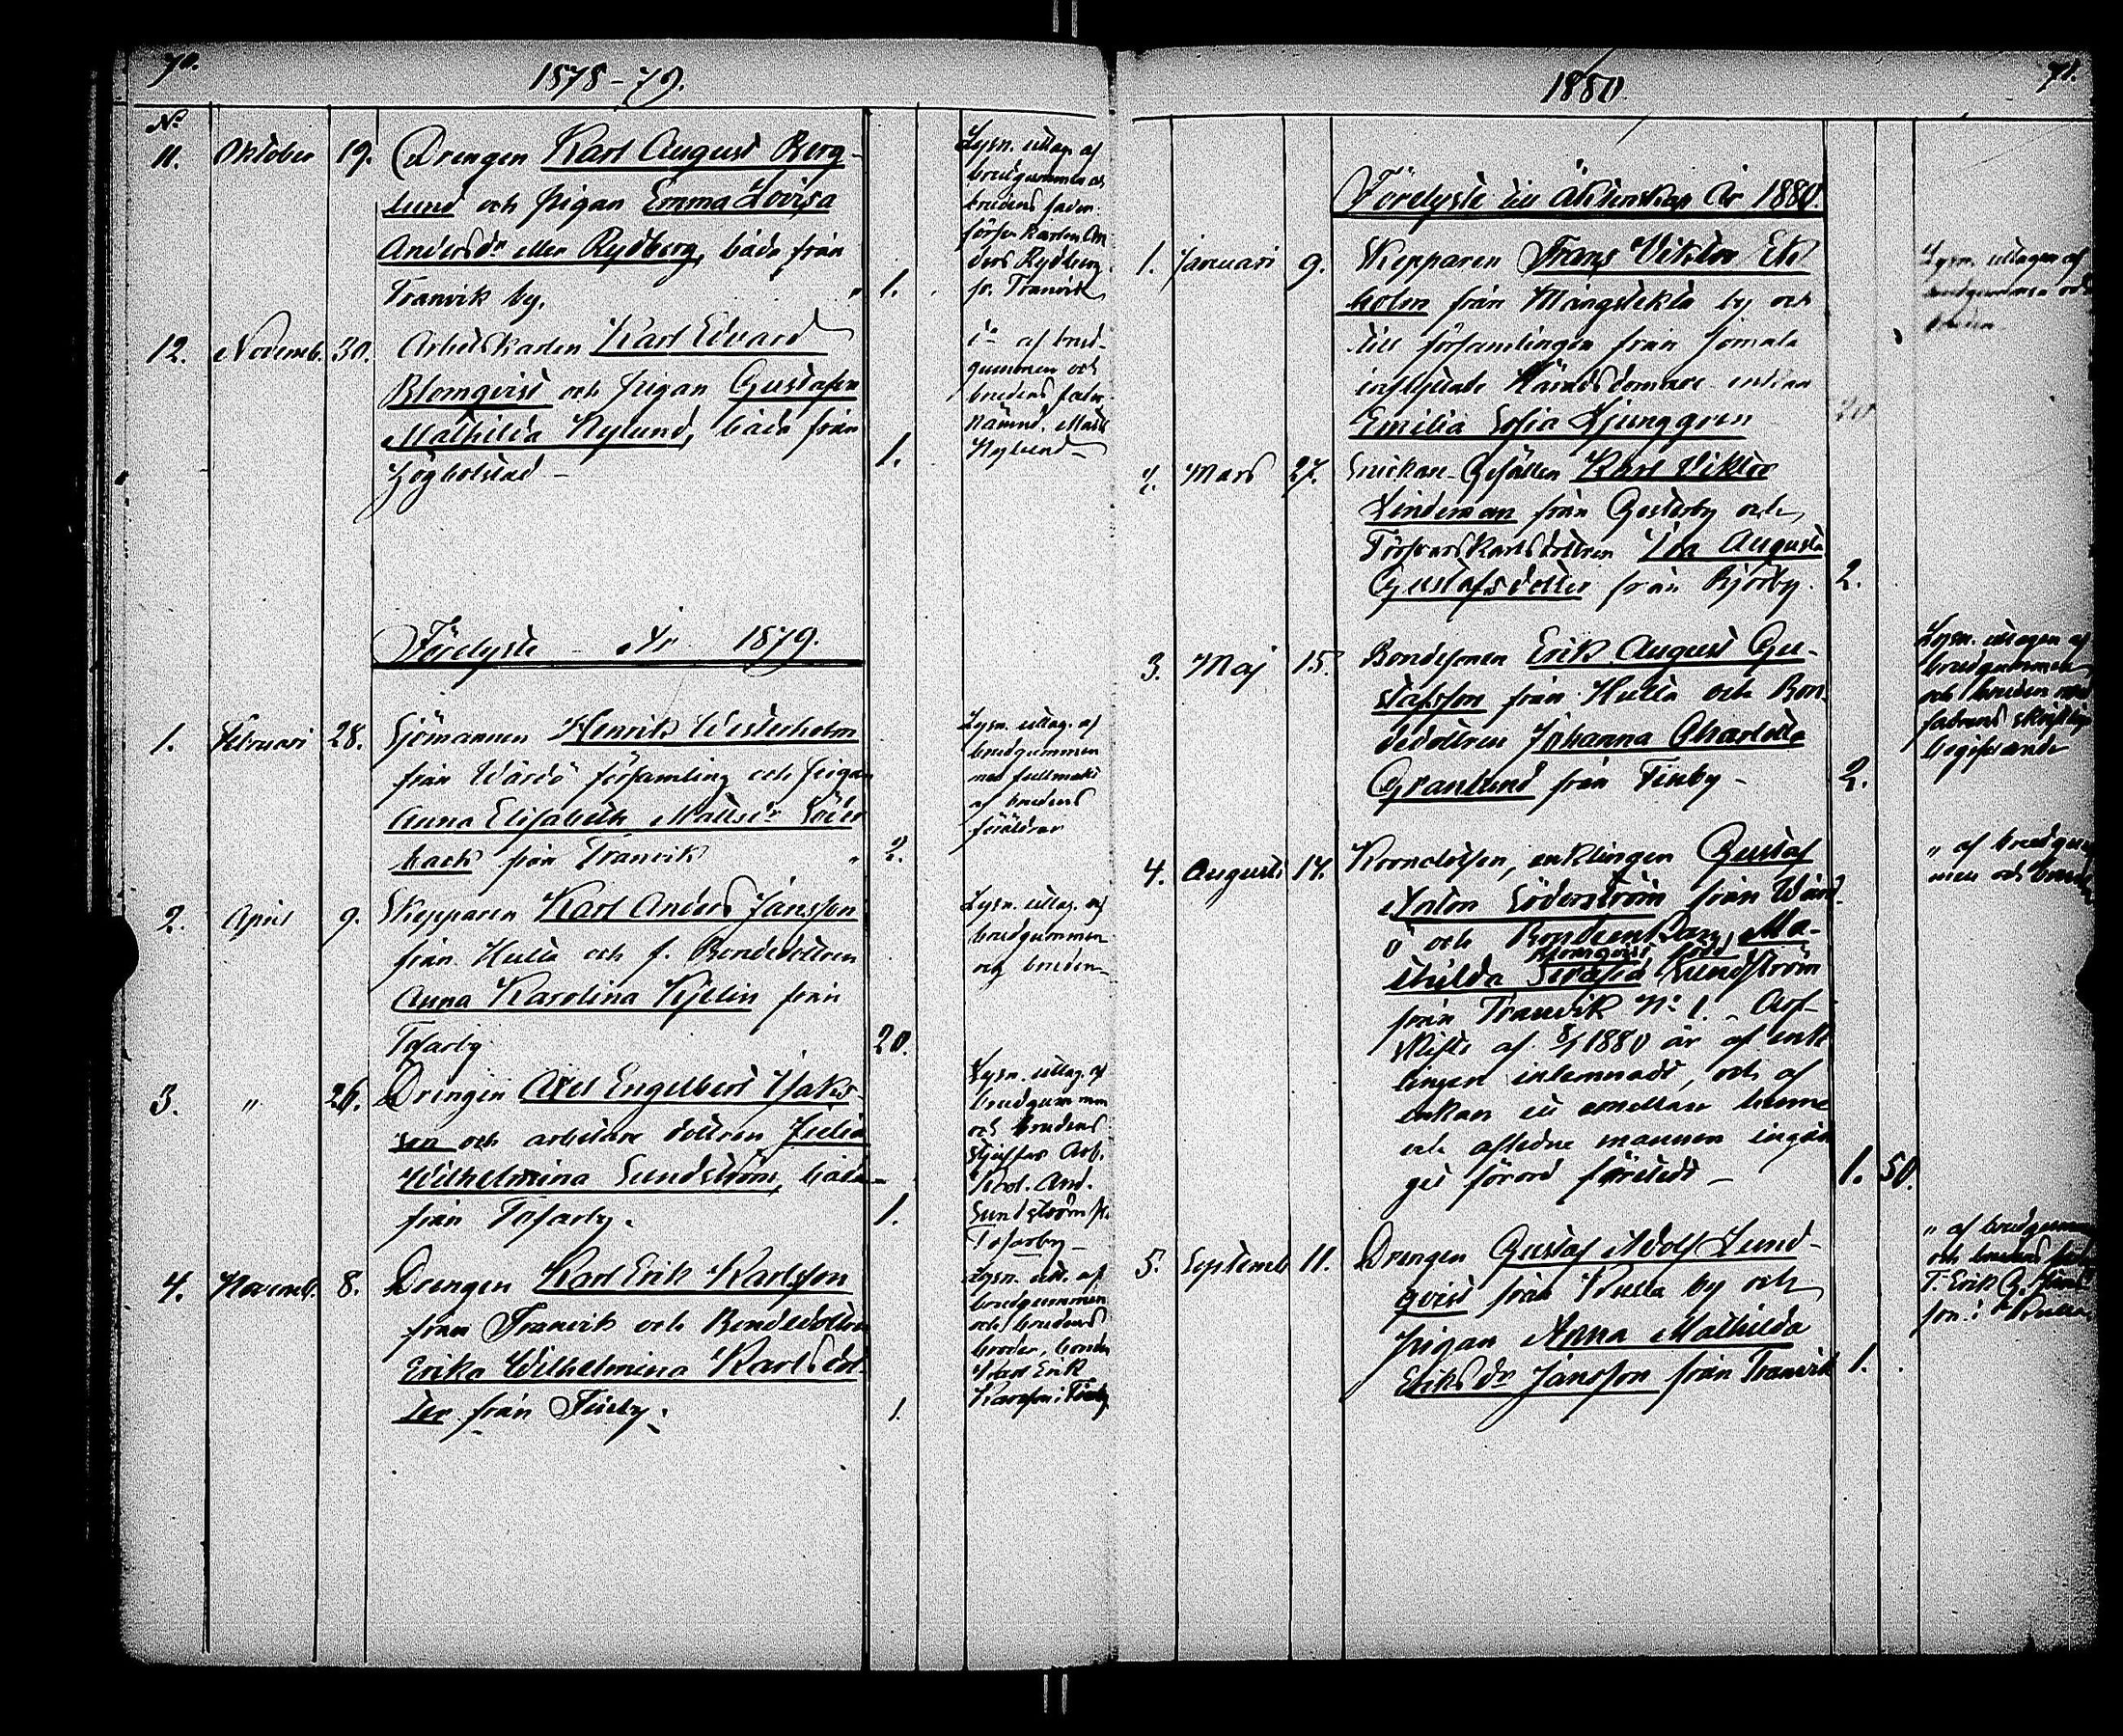 70.
1878-79.
No
11. Oktober 19. Drengen Karl August Berg-
lund och pigan Emma Lovisa
Andersdr eller Rydberg, båda från
Tranvik by. " 1.
Lysn. uttag. af
brudgummen och
brudens fader
An
ders Rydberg
fr. Tranvik
12. Novemb. 30. Arbetskarlen Karl Edvard
Blomqvist och pigan Gustafva
Mathilda Nylund, båda från 1.
Högbolstad -
af brud-
gummen och
brudens fader
Nämnd. Matts
Nylund -
Förelyste År 1879.
1. Februari 28. Sjömannen Henrik Westerholm
från Wårdö församling och pigan
Anna Elisabeth Mattsdr Söder
back från Tranvik " 2.
Lysn. uttag. af
brudgummen
med fullmakt
af brudens
föräldrar
2. April 9. Skepparen Karl Anders Jansson
från Hulta och f. Bondedottren
Anna Karolina Kjellin från
Tosarby 20.
Lysn. uttag. af
brudgummen
och bruden
3. " 26. Drengen Axel Engelbert Isaks-
son och arbetare dottren Julia
Wilhelmina Sundström, båda
från Tosarby. 1.
Lysn. uttag. af
brudgummen
och brudens
Arb.
And.
Sundström fr.
Tosarby -
4. Novemb. 8. Drengen Karl Erik Karlsson
från Tranvik och Bondedottren
Erika Wilhelmina Karlsdot-
ter från Finby. 1.
Lysn. utt. af
brudgummen
och brudens
broder, bonden
Karl Erik
Karlsson i Finby
71.
1880
Förelyste till Äktenskap År 1880.
1. Januari 9. Skepparen Frans Viktor Ek
holm från Mångstekta by och
till församlingen från Jomala
inflyttade Häradsdomare enkan
Emilia Sofia Ljunggren 20
Lysn. uttagen af
brudgummen och
bruden
2. Mars 27. Snickare-Gesällen Karl Viktor
Lindeman från Gesterby och
Torparedottren Ida Augusta
Gustafsdotter från Björby. 2.
3. Maj 15. Bondesonen Erik August Gu-
stafsson från Hulta och Bon-
dedottren Johanna Charlotta
Granlund från Finby - 2.
Lysn. uttagen af
brudgummen
och bruden med
fadrens skriftliga
begifvande
4. Augusti 14. Kronolotsen, enklingen Gustaf
Anton Söderström från Wård-
ö och Bondeenkan Ma-
Blomqvist född
thilda Serafia Sundström
från Tranvik No 1. Arf-
skifte af 8/1 1880 är af enk
lingen inlemnadt, och af
enkan är emellan henne
och aflidne mannen ingån
get förord företedt - 1. 50.
" af brudgum
men och bruden
5. Septemb. 11. Drengen Gustaf Adolf Lund-
qvist från Kulla by och
pigan Anna Mathilda
Eriksdr Jansson från Tranvik 1.
" af brudgummen
och brudens
T. Erik G. Jans
son i Kulla